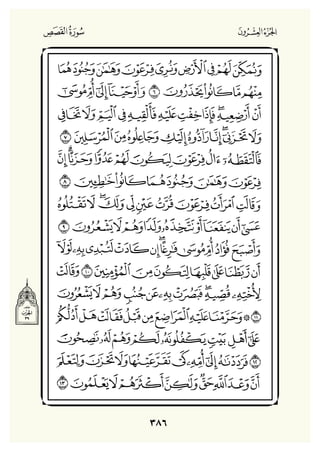 الجزء العشرون
سورة القصص
وَنُمَكِّنَ لَهُمْ فِي الْأَرْضِ وَنُرِيَ فِرْعَوْنَ وَهَامَانَ وَجُنُودَهُمَا
مِنْهُم مَّا كَانُوا يَحْذَرُونَ ٦ وَأَوْحَيْنَا إِلَىٰ أُمِّ مُوسَىٰ
أَنْ أَرْضِعِيهِ فَإِذَا خِفْتِ عَلَيْهِ فَأَلْقِيهِ فِي الْيَمِّ وَلَا تَخَافِي
وَلَا تَحْزَنِي إِنَّا رَادُّوهُ إِلَيْكِ وَجَاعِلُوهُ مِنَ الْمُرْسَلِينَ ٧
فَالْتَقَطَهُ آلُ فِرْعَوْنَ لِيَكُونَ لَهُمْ عَدُوًّا وَحَزَنًا إِنَّ
فِرْعَوْنَ وَهَامَانَ وَجُنُودَهُمَا كَانُوا خَاطِئِينَ ٨
وَقَالَتِ امْرَأَتُ فِرْعَوْنَ قُرَّتُ عَيْنٍ لِّي وَلَكَ لَا تَقْتُلُوهُ
عَسَىٰ أَن يَنفَعَنَا أَوْ نَتَّخِذَهُ وَلَدًا وَهُمْ لَا يَشْعُرُونَ ٩
وَأَصْبَحَ فُؤَادُ أُمِّ مُوسَىٰ فَارِغًا إِن كَادَتْ لَتُبْدِي بِهِ لَوْلَا
أَن رَّبَطْنَا عَلَىٰ قَلْبِهَا لِتَكُونَ مِنَ الْمُؤْمِنِينَ ١٠ وَقَالَتْ
لِأُخْتِهِ قُصِّيهِ فَبَصُرَتْ بِهِ عَن جُنُبٍ وَهُمْ لَا يَشْعُرُونَ
١١ ۞ وَحَرَّمْنَا عَلَيْهِ الْمَرَاضِعَ مِن قَبْلُ فَقَالَتْ هَلْ أَدُلُّكُمْ
عَلَىٰ أَهْلِ بَيْتٍ يَكْفُلُونَهُ لَكُمْ وَهُمْ لَهُ نَاصِحُونَ
١٢ فَرَدَدْنَاهُ إِلَىٰ أُمِّهِ كَيْ تَقَرَّ عَيْنُهَا وَلَا تَحْزَنَ وَلِتَعْلَمَ
أَنَّ وَعْدَ اللَّهِ حَقٌّ وَلَٰكِنَّ أَكْثَرَهُمْ لَا يَعْلَمُونَ ١٣
٣٨٦